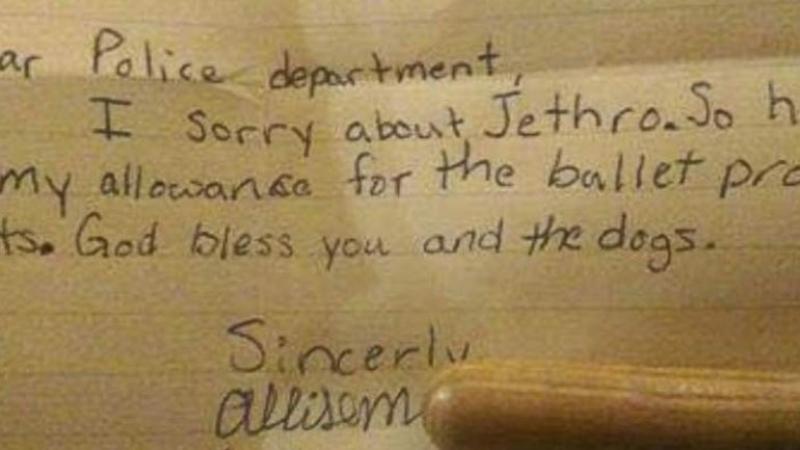 ar Police department,
I sorry about Jethro. So h
my allowance for the bullet pro
ts. God bless you and the dogs.
Sincerly